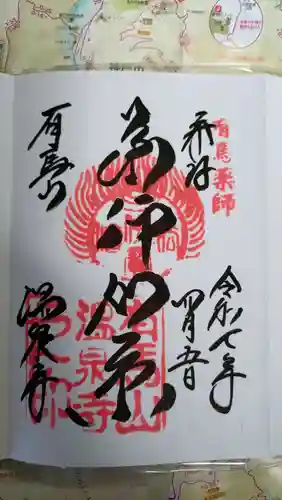 有馬薬師
奉拝
令和七年
四月五日
薬師如来
有馬山
温泉寺
有馬山
温泉寺
之印